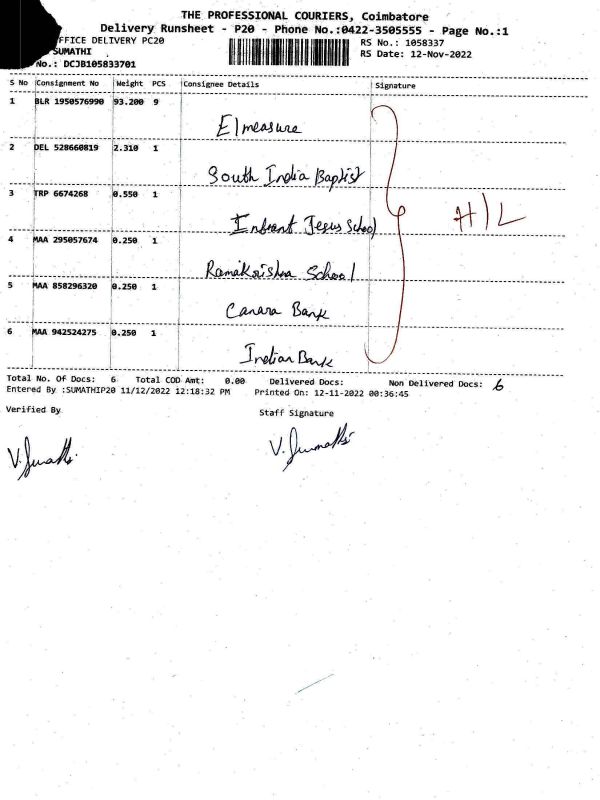 THE PROFESSIONAL COURIERS, Coimbatore
Delivery Runsheet - P20 - Phone No.:0422-3505555 - Page No.:1
FFICE DELIVERY PC20
RS No.: 1058337
SUMATHI
RS Date: 12-Nov-2022
No.: DCJB105833701
S No Consignment No Weight PCS Consignee Details Signature
1 BLR 1950576990 93.200 9
Elmeasure
2 DEL 528660819 2.310 1
South India Baptist
3 TRP 6674268 0.550 1
Infant Jesus School
H/L
4 MAA 295057674 0.250 1
Ramakrishna School
5 MAA 858296320 0.250 1
Canara Bank
6 MAA 942524275 0.250 1
Indian Bank
Total No. Of Docs: 6 Total COD Amt: 0.00 Delivered Docs: Non Delivered Docs: 6
Entered By :SUMATHIP20 11/12/2022 12:18:32 PM Printed On: 12-11-2022 00:36:45
Verified By Staff Signature